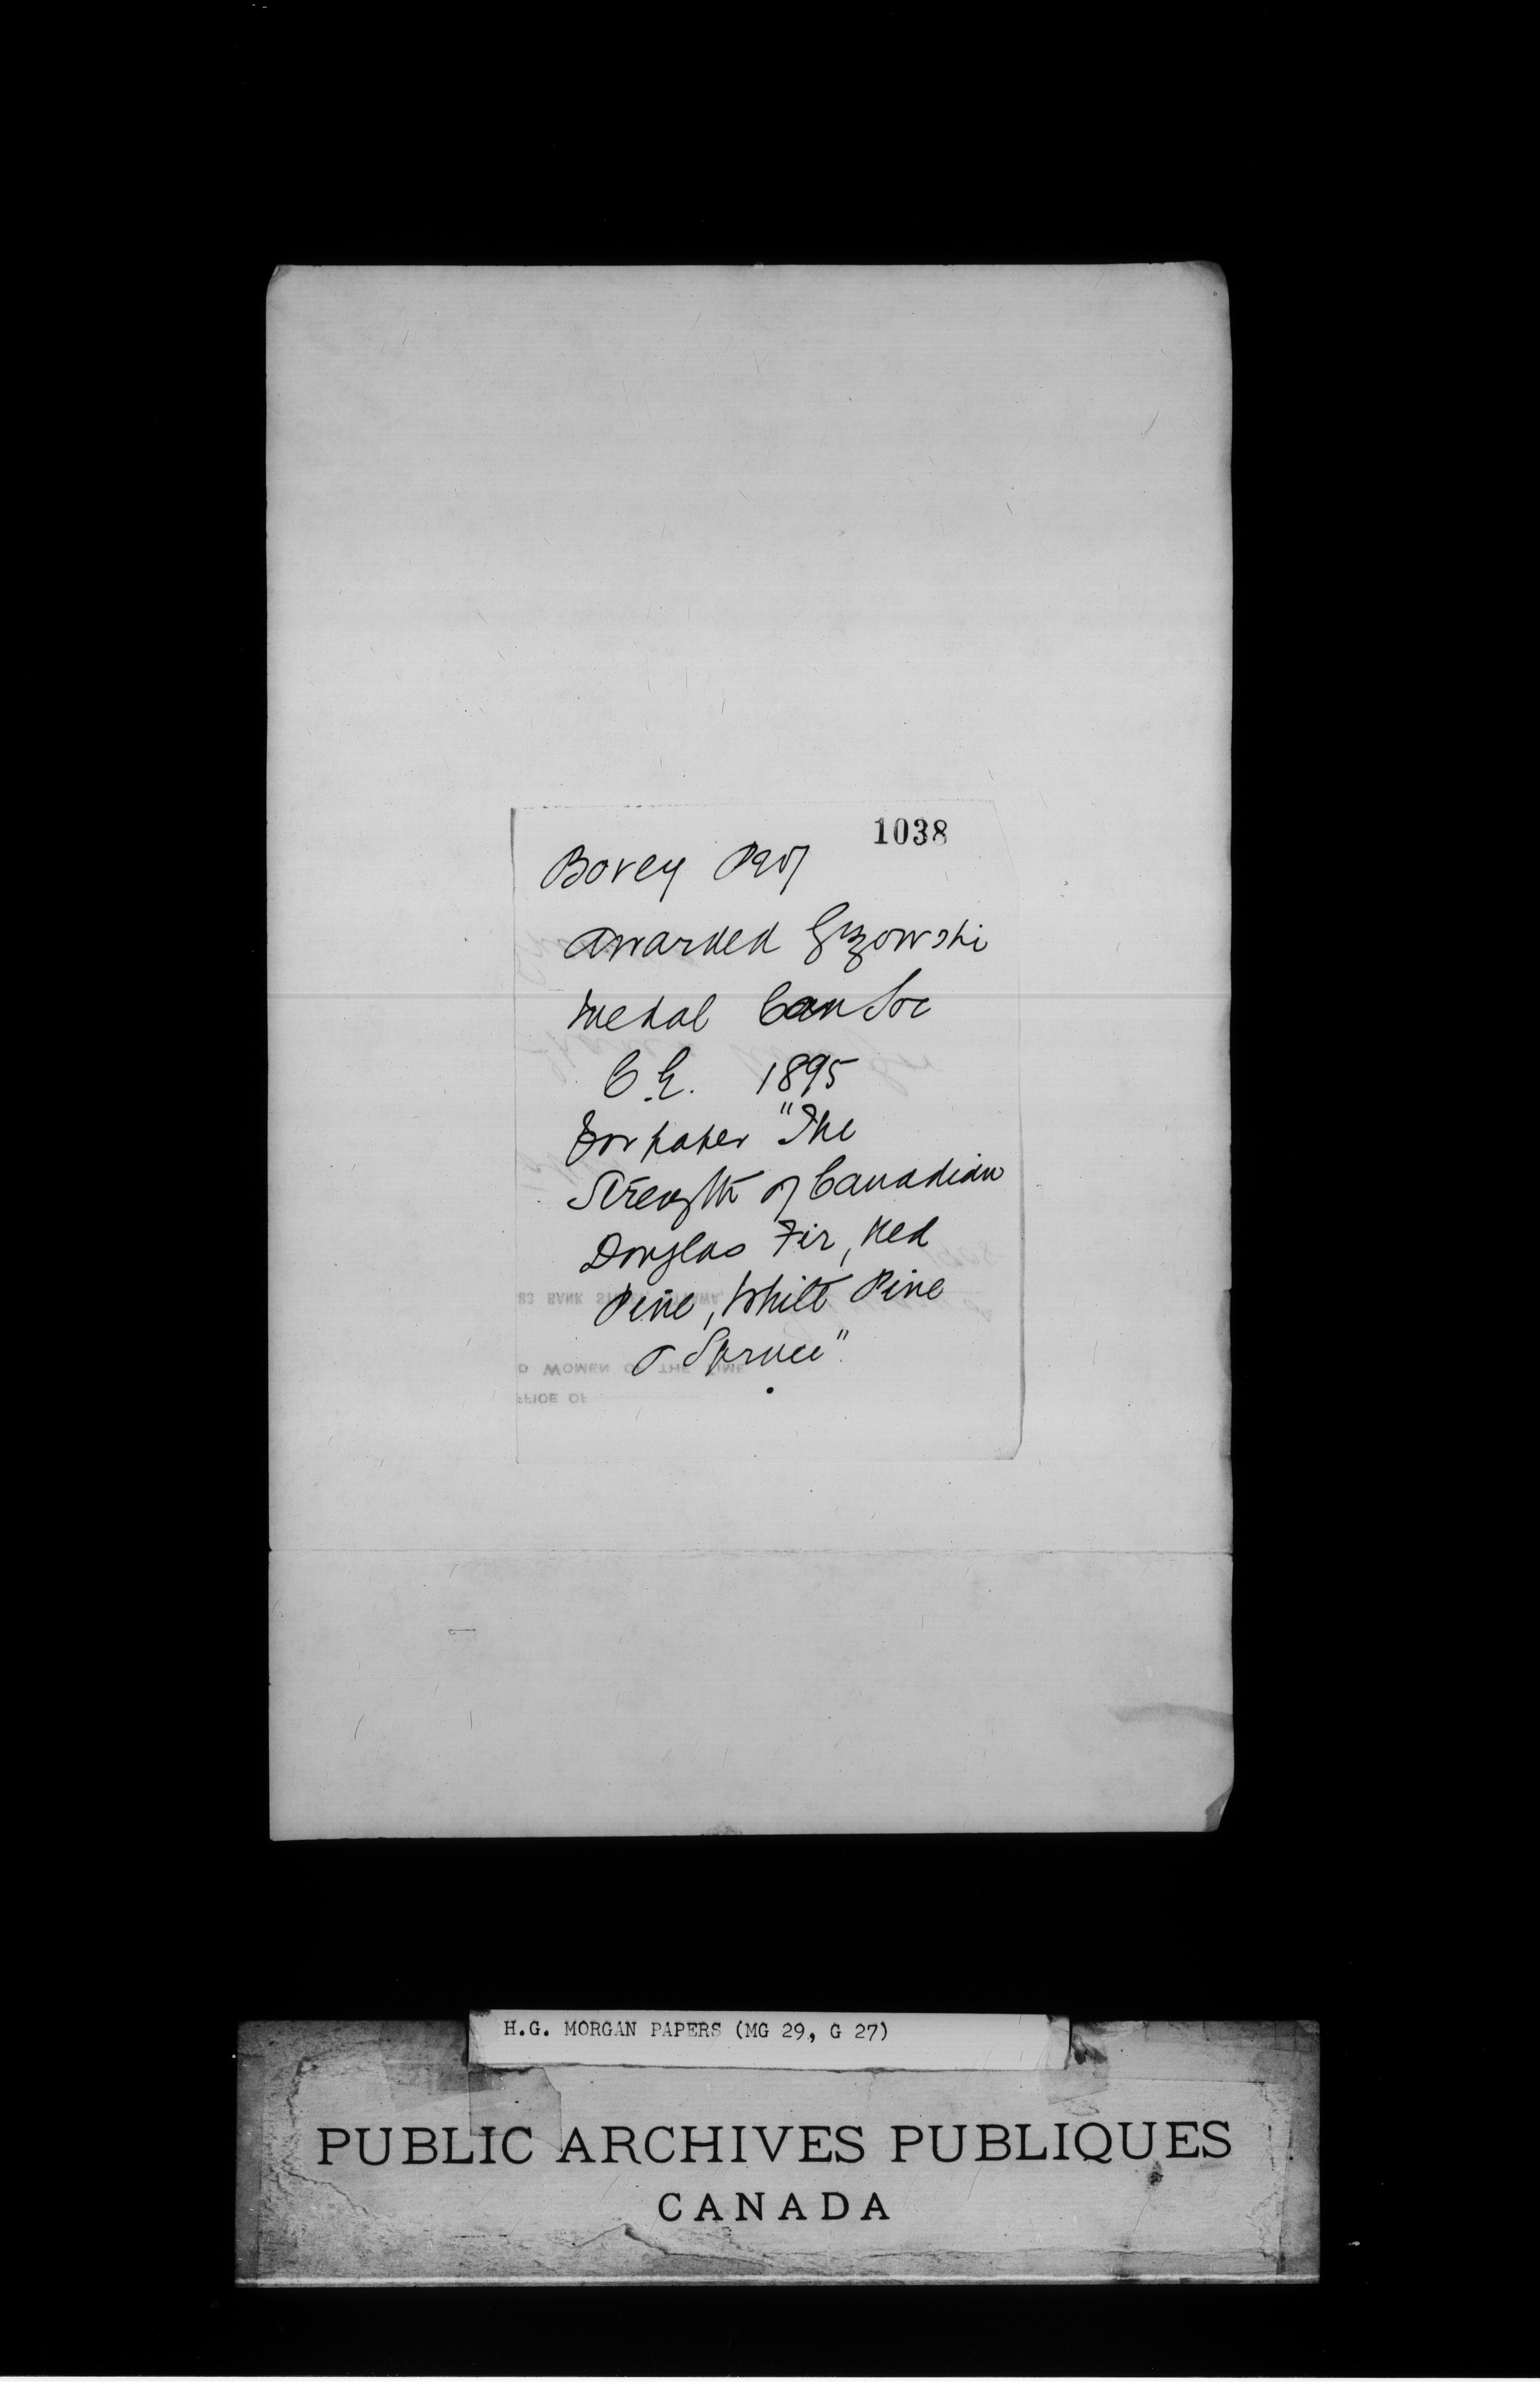 1038
Bovey Prof
awarded Gzowski
medal Can Soc
C.E. 1895
for paper "The
Strength of Canadian
Douglas Fir, Red
Pine, White Pine
& Spruce".
83 BANK ST
D WOMEN OF THE TIME
FFICE OF
H.G. MORGAN PAPERS (MG 29, G 27)
PUBLIC ARCHIVES PUBLIQUES
CANADA